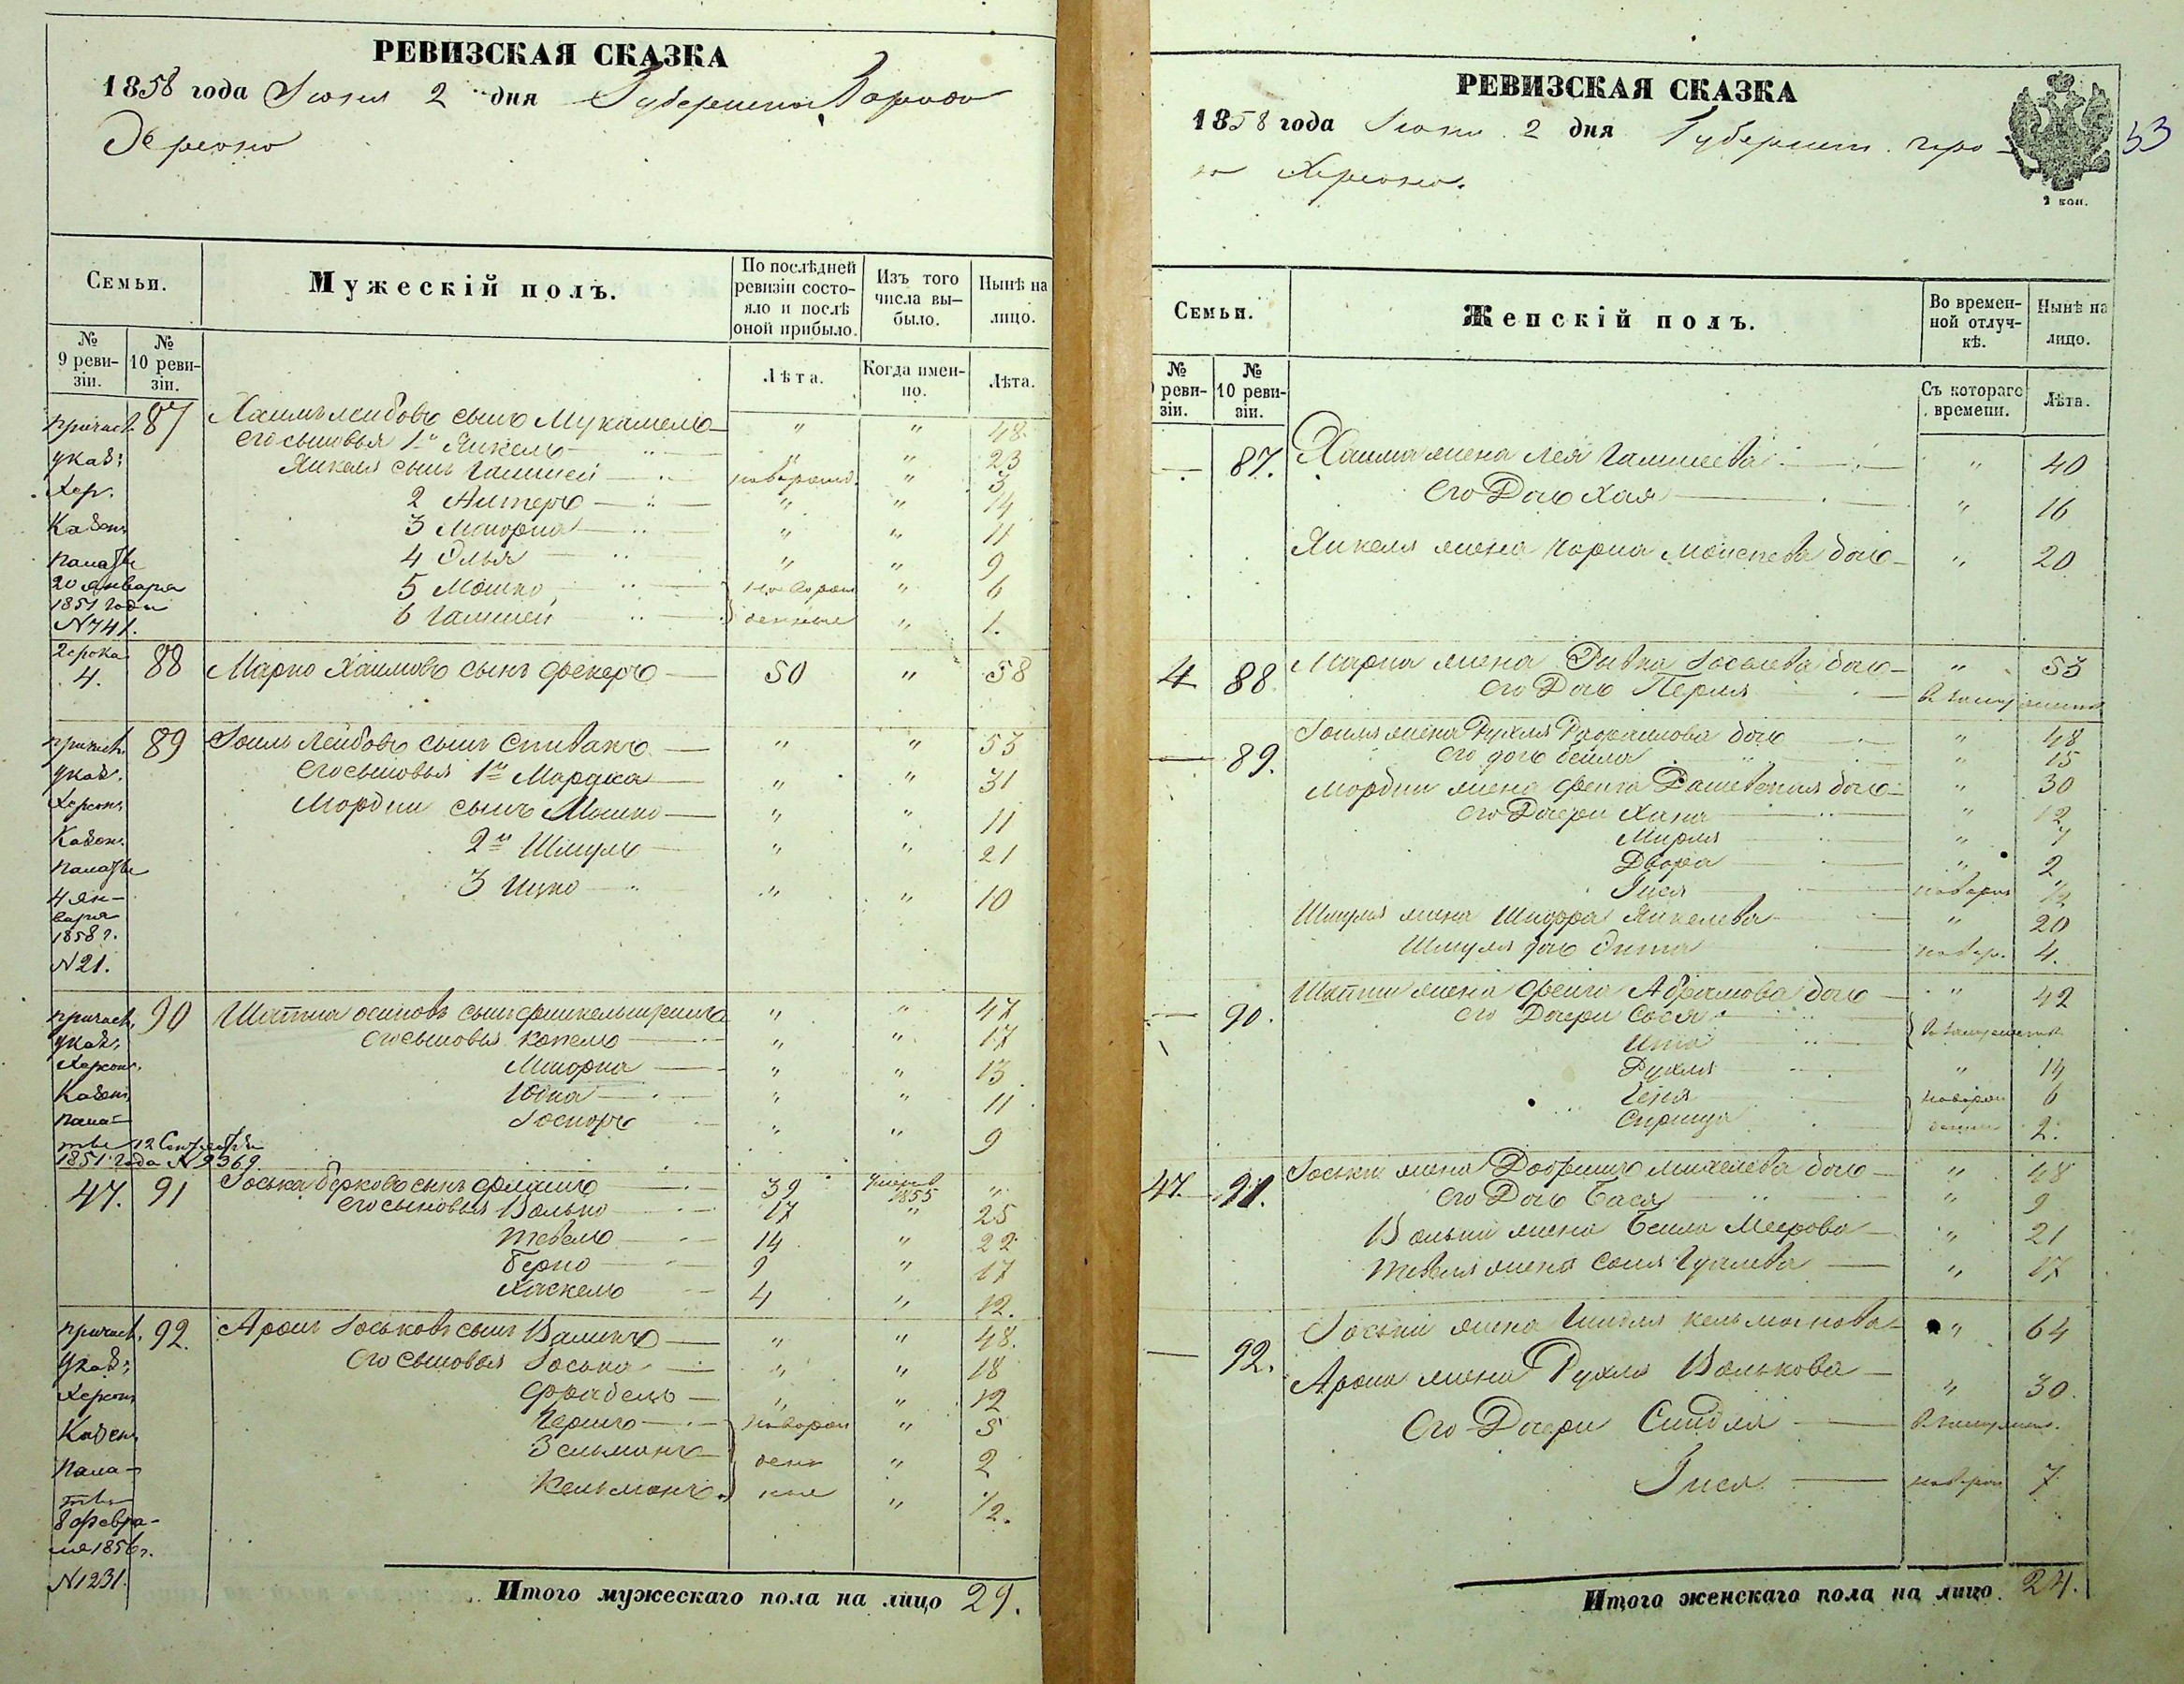 РЕВИЗСКАЯ СКАЗКА
1858 года Іюня 2 дня Губернскій Городъ
Херсонъ
Семьи.
Мужескій полъ.
По послѣдней ревизіи состояло и послѣ оной прибыло.
Изъ того числа выбыло.
Нынѣ на лицо.
№ 9 ревизіи.
№ 10 ревизіи.
Лѣта.
Когда именно.
Лѣта.
87 Хаимъ Лейбовъ сынъ " " 48
его сыновья 1й Янкель " " 23
Янкеля сынъ новорожд. " 3
2 Алтеръ " " 14
3 " " 11
4 Элья " " 9
5 Мошко новорож " 6
6 денные " 1.
причис.
указ:
Хер.
Казен.
Палаты
20 Января
1851 года
N 741.
2 срока
4. 88 Марко Хаимовъ сынъ Фекеръ 50 " 58
89 Іоиль Лейбовъ сынъ Спивакъ " " 53
его сыновья 1й Мордка " " 31
Мордки сынъ Мошко " " 11
2й Шмуль " " 21
3 Ицко " " 10
причис.
указ.
Херсон.
Казен.
Палаты
4 Ян-
варя
1858 г.
N 21.
90 осиповъ сынъ " " 47
его сыновья Копель " " 17
" " 13
Юдка " " 11
" " 9
причис.
указ.
Херсон.
Казен.
Пала-
ты 12 Сентября
1851 года N 9369.
47. 91 Іоська Берковъ сынъ 39 умеръ 1855 "
его сыновья Волько 17 " 25
Тевель 14 " 22
Берко 9 " 17
Хаскель 4 " 12.
92. Аронъ Іоськовъ сынъ " " 48.
его сыновья Іосько " " 18
" " 12
новорож " 5
Зельманъ ден " 2
Кельманъ ные " 1/2.
причис.
Указ:
Херсон.
Казен.
Пала-
ты
8 Февра-
ля 1856 г.
N 1231.
Итого мужескаго пола на лицо 29.
РЕВИЗСКАЯ СКАЗКА
1858 года Іюня 2 дня Губернск. горо-
да Херсона.
2 коп.
53
Семьи.
Женскій полъ.
Во временной отлучкѣ.
Нынѣ на лицо.
№ 9 ревизіи.
№ 10 ревизіи.
Съ котораго времени.
Лѣта.
— 87. Хаима жена Лея " 40
его Дочь Хая " 16
Янкеля жена Чарна дочь " 20
4 88. Марка жена Ривка дочь " 53
его Дочь Перля въ замужестве
— 89. Іоиля жена Рухля дочь " 48
его дочь Бейла " 15
Мордки жена Фейга дочь " 30
его Дочери Хана " 12
Мирля " 7
Двора " 2
Гися новорож 1/2
Шмуля жена Шифра Янкелева " 20
Шмуля дочь новор. 4.
— 90. жена Фейга Абрамова дочь " 42
его Дочери Сося
Ита в замужестве
Рухля " 14
Геня новорож 6
Сприца денные 2.
47. 91. Іоськи жена дочь " 48
его Дочь Бася " 9
Вольки жена Бейла Меерова " 21
Тевеля жена " 17
— 92. Іоськи жена Кельманова " 64
Арона жена Рухля Волькова " 30.
его Дочери Синдля в замужест.
Гися новорож 7
Итого женскаго пола на лицо. 24.